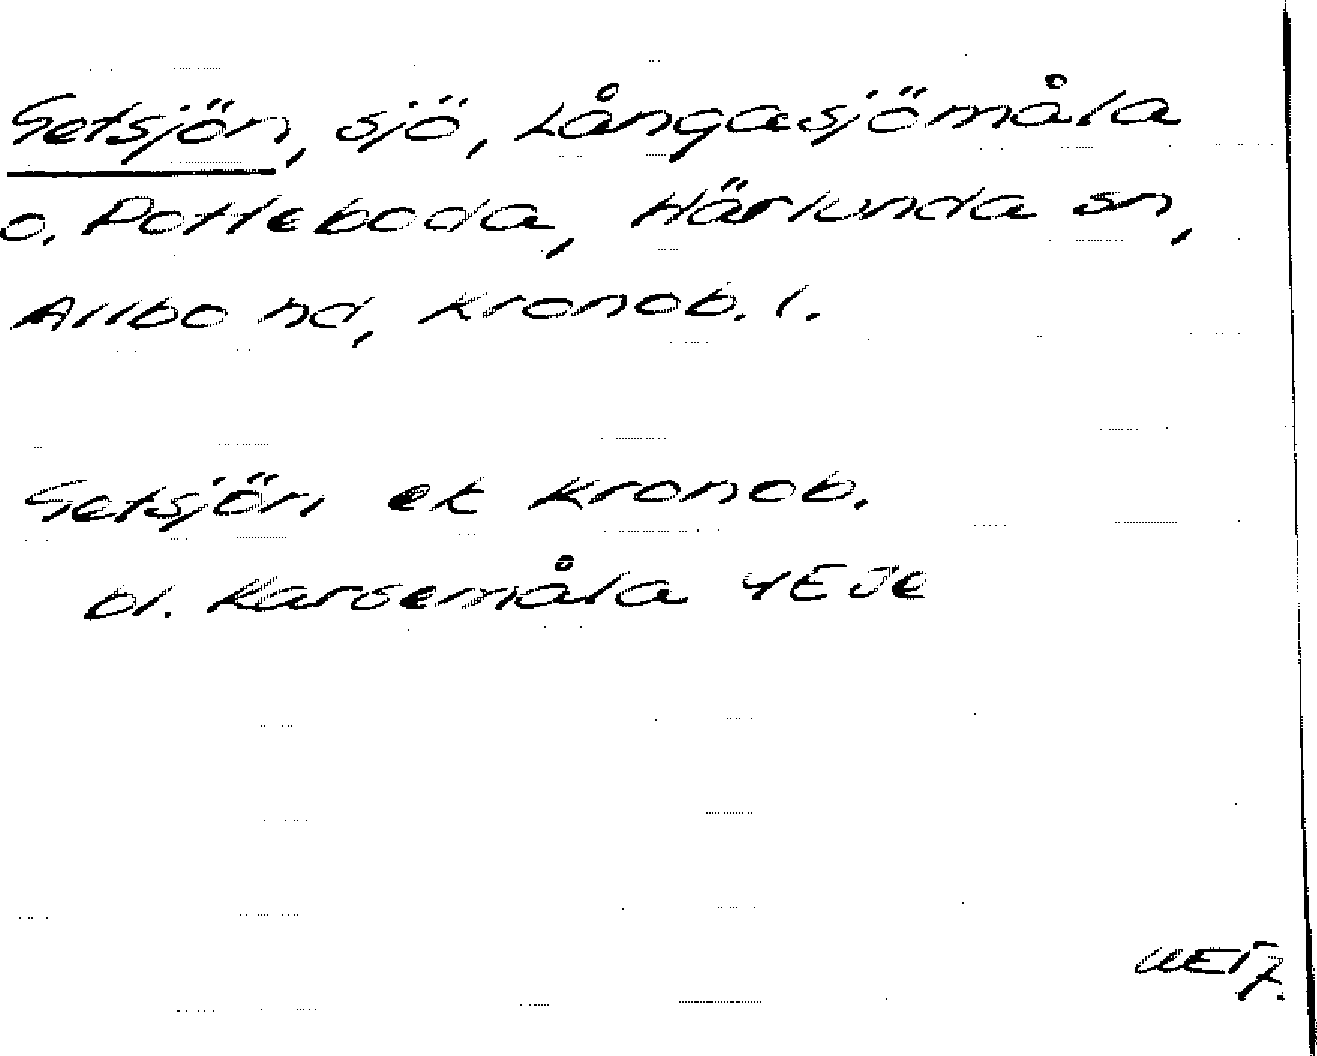 Getsjön, sjö, Långasjömåla
o. Potteboda, Härlunda sn,
Allbo hd, Kronob. l.
Getsjön ek Kronob.
bl. Karsemåla 4E Je